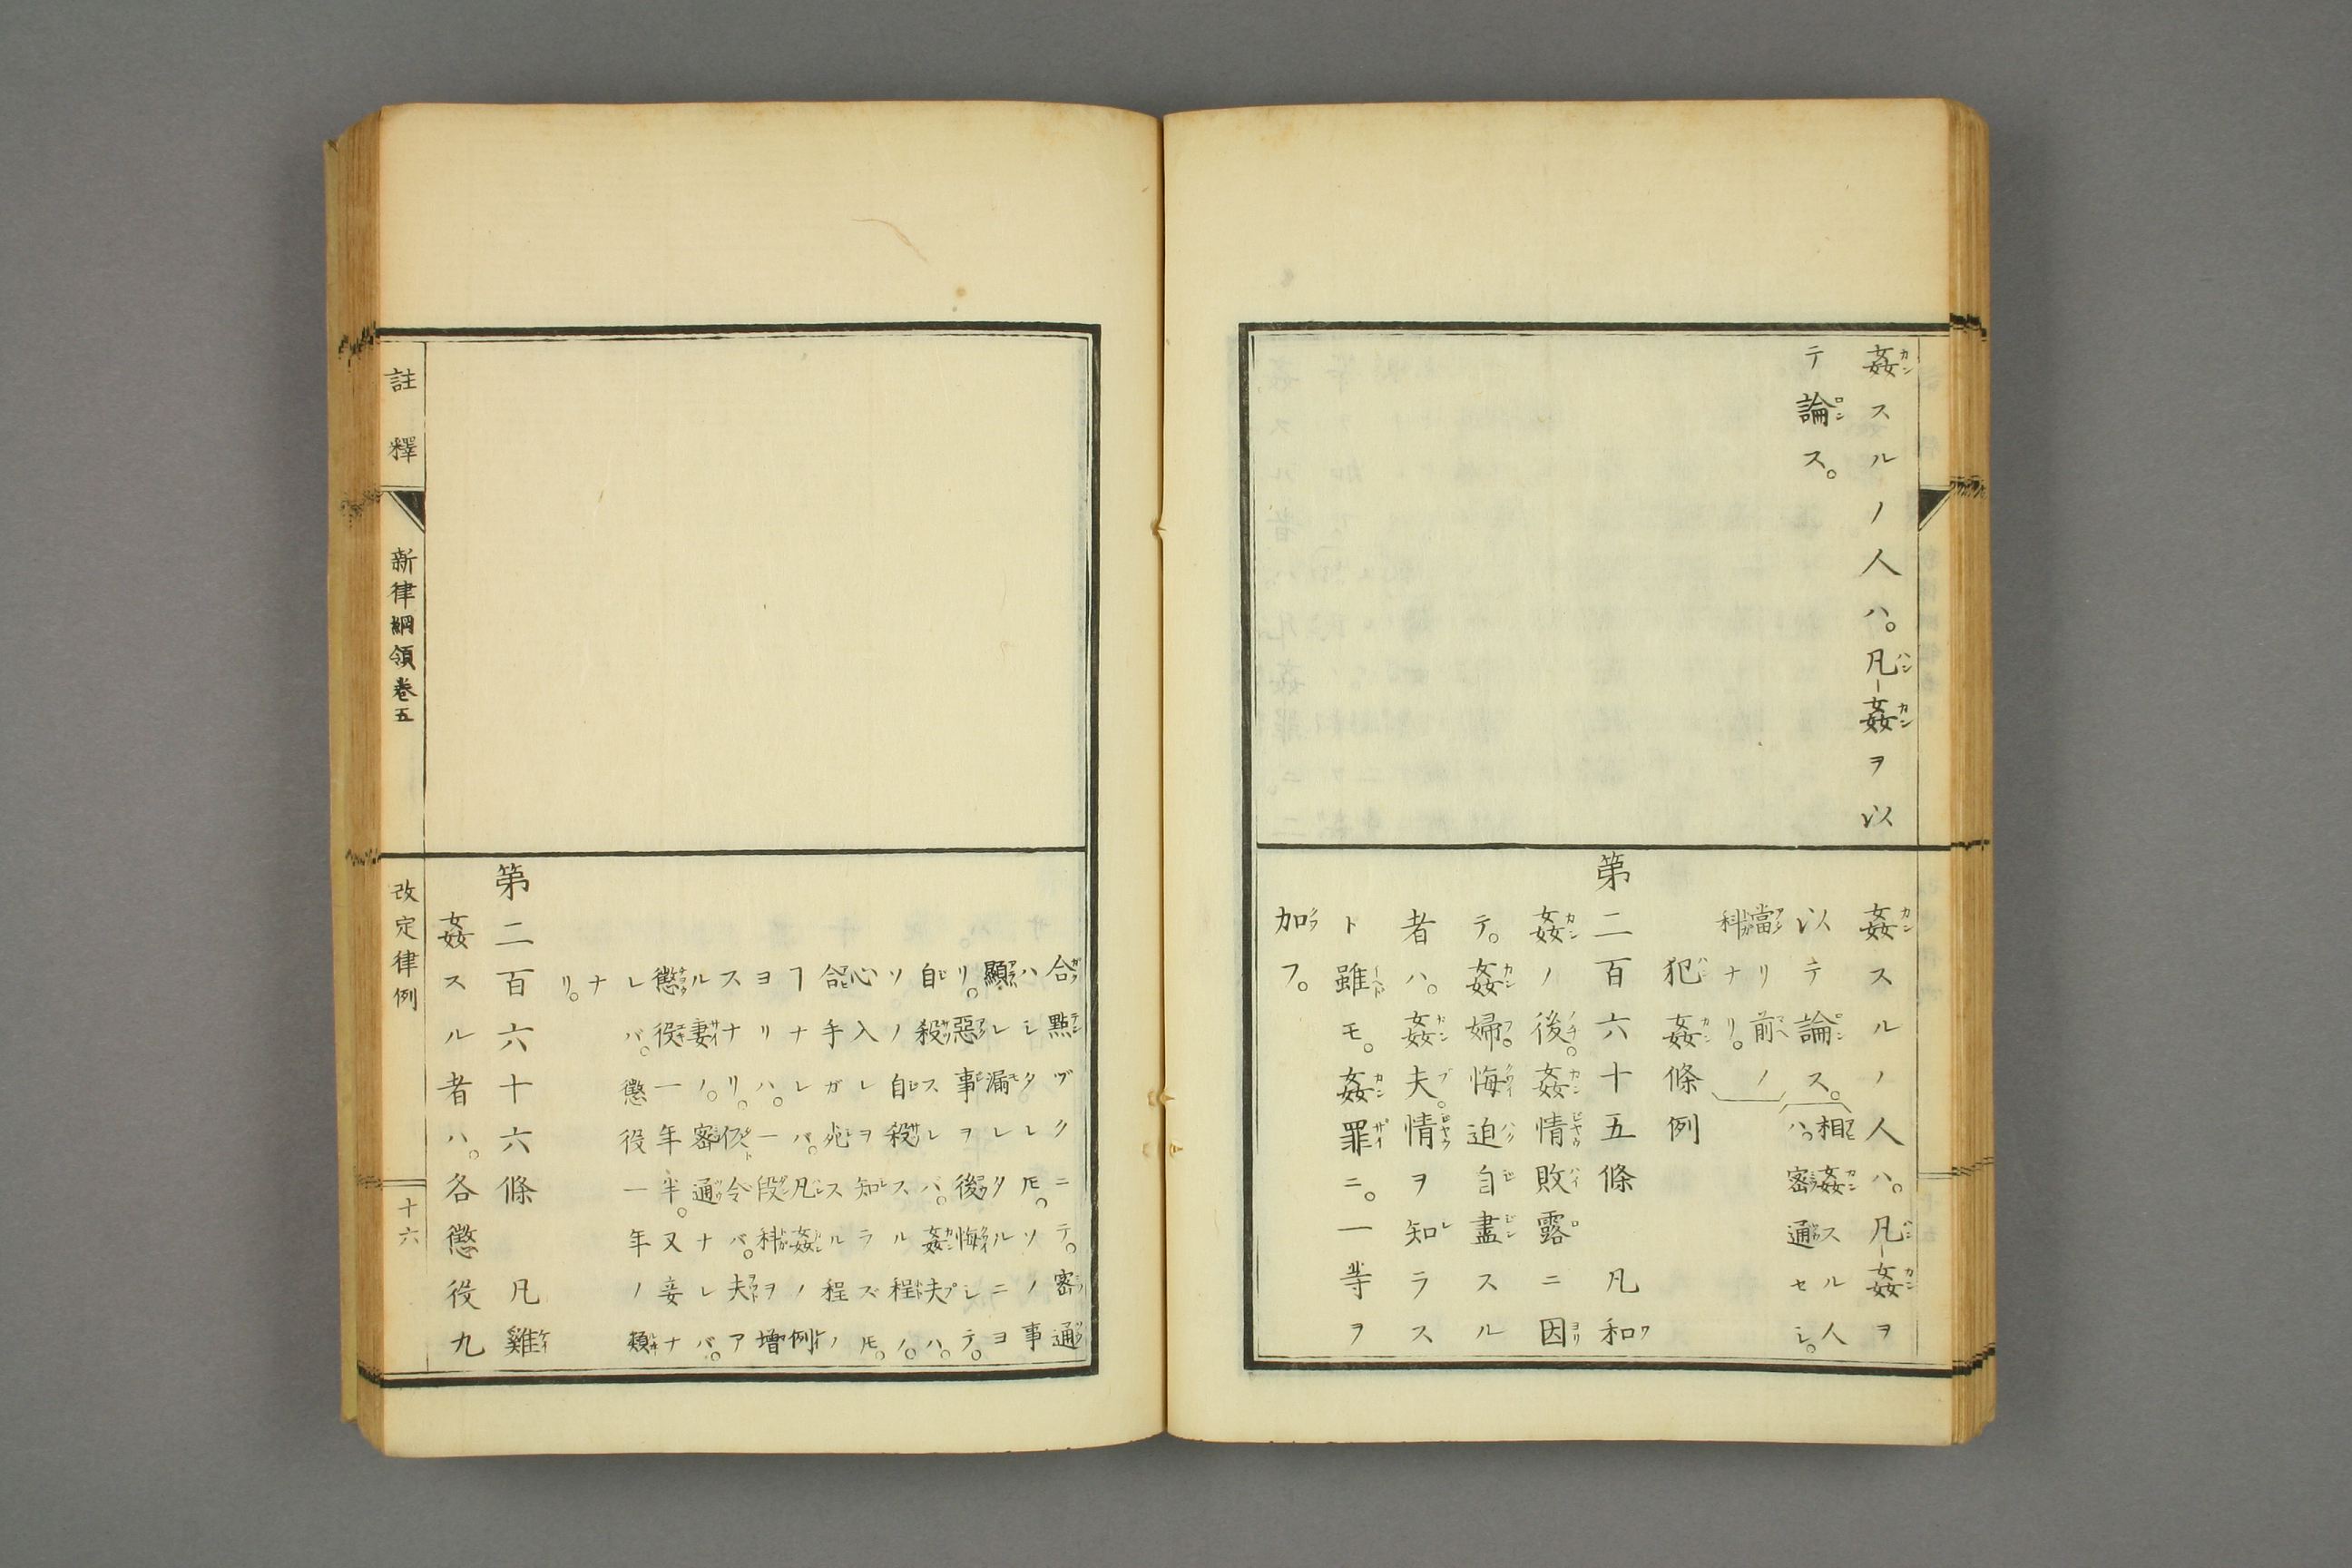 姦スルノ人ハ。凡姦ヲ以
テ論ス。
姦スルノ人ハ。凡姦ヲ
以テ論ス。相姦スル人
ハ。密通セシ。
當リ前ノ
科ナリ。
犯姦條例
第二百六十五條 凡和
姦ノ後。姦情敗露ニ因
テ。姦婦。悔迫自盡スル
者ハ。姦夫。情ヲ知ラス
ト雖モ。姦罪ニ。一等ヲ
加フ。
合點ヅクニテ。密通
ハシタレ𪜈。ソノ事
顯レ漏レタルニヨ
リ。惡事ヲ後悔シテ。
自殺スレバ。姦夫ハ。
ソノ自殺スル程ノ。
心入レヲ知ラズ𪜈。
合手ガ死スル程ノ
ヿナレバ。凡姦ノ例
ヨリハ。一段科ヲ増
スナリ。仮令バ。夫ア
ル妻ノ。密通ナレバ。
懲役一年半。又妾ナ
レバ。懲役一年ノ類
ナ
リ。
第二百六十六條 凡雞
姦スル者ハ。各懲役九
註釋 新律綱領卷五
改定律例 十六